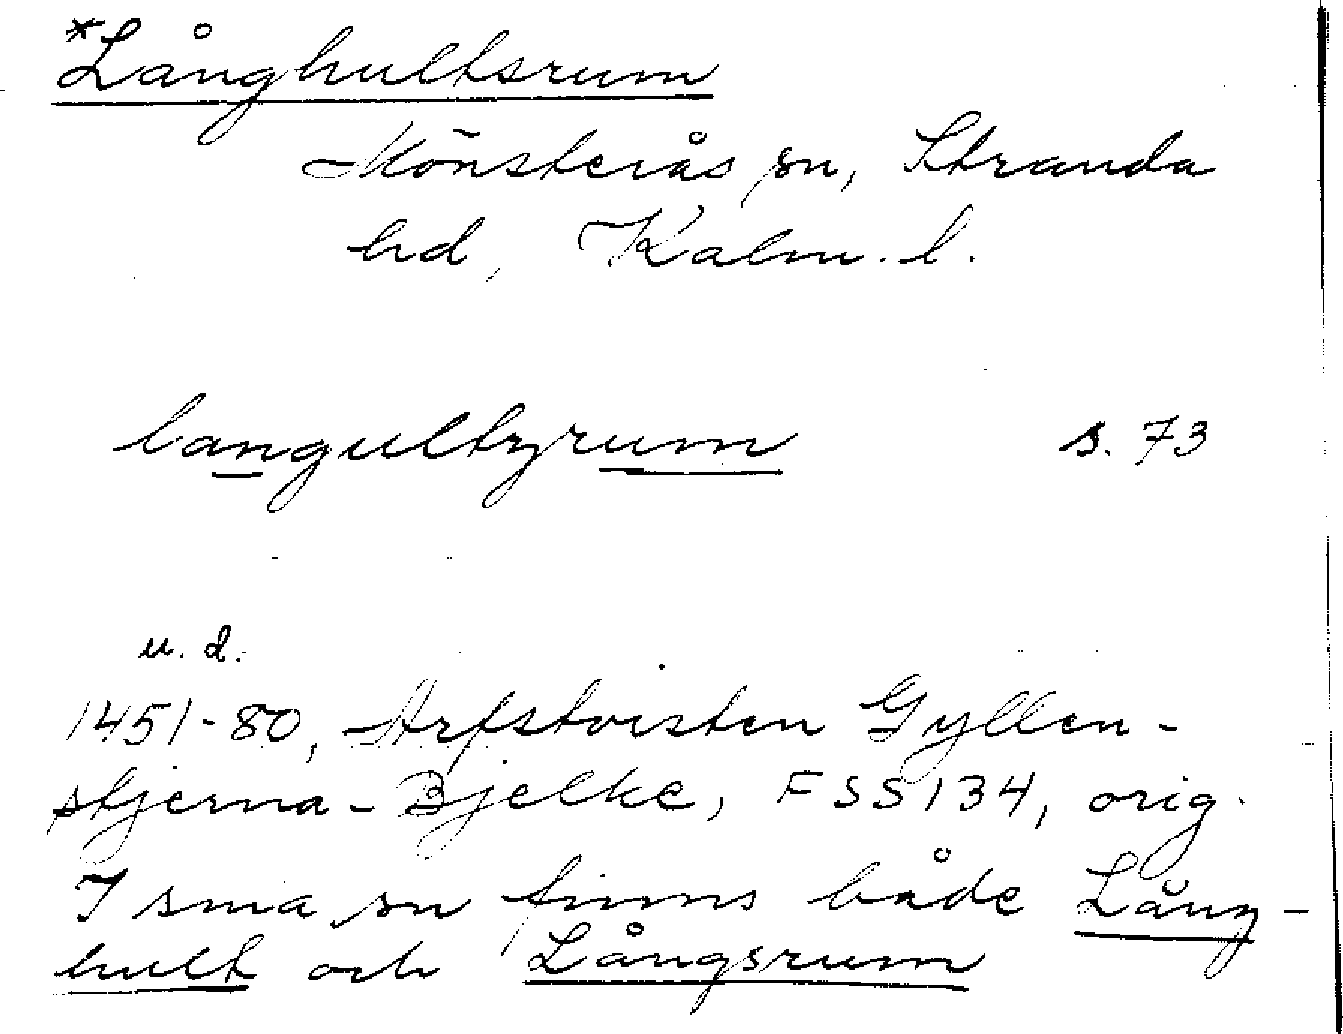 *Långhultsrum
Mönsterås sn, Stranda
hd, Kalm. l.
langultzrum s. 73
u. d.
1451-80, Arfstvisten Gyllen-
stjerna-Bjelke, FSS 134, orig.
I sma sn finns både Lång-
hult och Långsrum